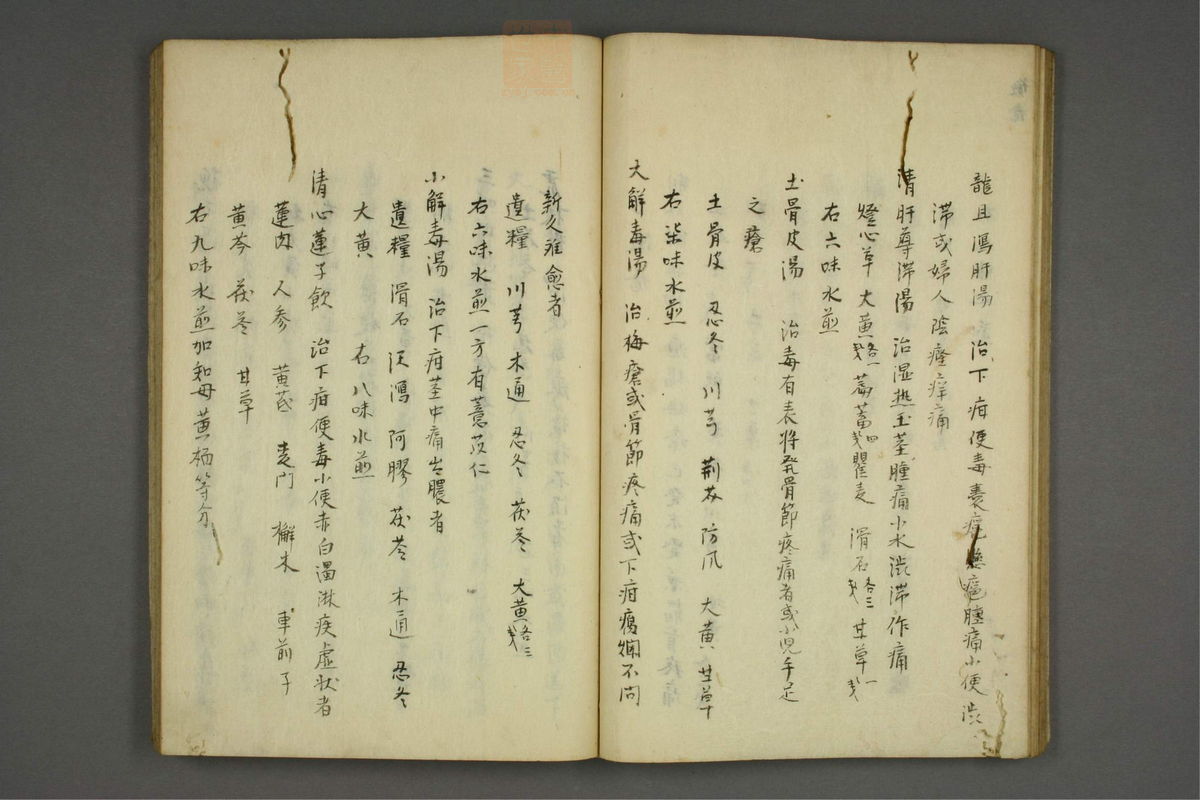 龍且瀉肝湯 治下疳便毒囊癰懸癰腫痛小便渋
滞或婦人陰癃痒痛
清肝導滞湯 治湿热玉茎腫痛小水渋滞作痛
燈心草 大黄各一戔 萹蓄四戔 瞿麦 滑石各三戔 甘草一戔
右六味水煎
土骨皮湯 治毒有表将発骨節疼痛者或小児手足
之瘡
土骨皮 忍冬 川芎 荊芥 防风 大黄 甘草
右柒味水煎
大解毒湯 治梅瘡或骨節疼痛或下疳瘍爛不問
新久難愈者
遺糧 川芎 木通 忍冬 茯苓 大黄各三戔
右六味水煎一方有薏苡仁
小解毒湯 治下疳茎中痛出膿者
遺糧 滑石 沢瀉 阿膠 茯苓 木通 忍冬
大黄 右八味水煎
清心蓮子飲 治下疳便毒小便赤白濁淋疾虚状者
蓮肉 人参 黄芪 麦門 櫴木 車前子
黄芩 茯苓 甘草
右九味水煎加知母黄栢等分